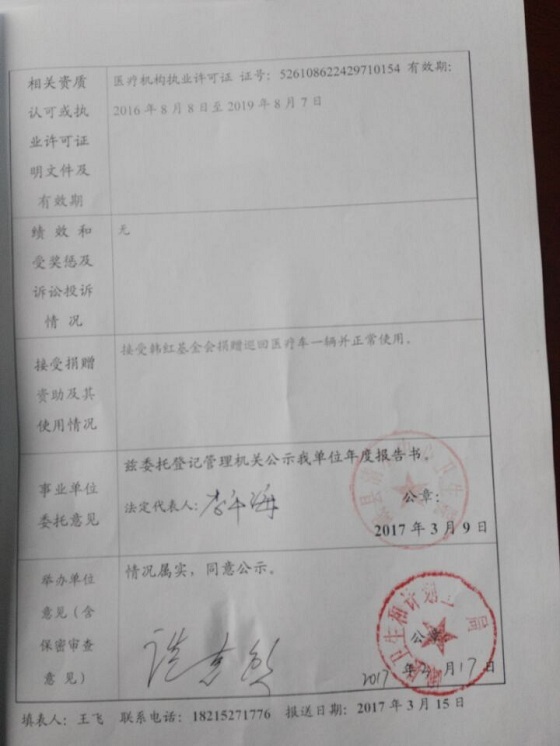 相关资质
认可或执
业许可证
明文件及
有效期
医疗机构执业许可证 证号：526108622429710154 有效期：
2016 年 8 月 8 日至 2019 年 8 月 7 日
绩 效 和
受奖惩及
诉讼投诉
情 况
无
接受捐赠
资助及其
使用情况
接受韩红基金会捐赠巡回医疗车一辆并正常使用。
事业单位
委托意见
兹委托登记管理机关公示我单位年度报告书。
法定代表人：
公章：
2017 年 3 月 9 日
举办单位
意见（含
保密审查
意 见）
情况属实，同意公示。
公章
2017 年 3 月 17 日
卫生和计划生
局
填表人：王飞 联系电话：18215271776 报送日期：2017 年 3 月 15 日